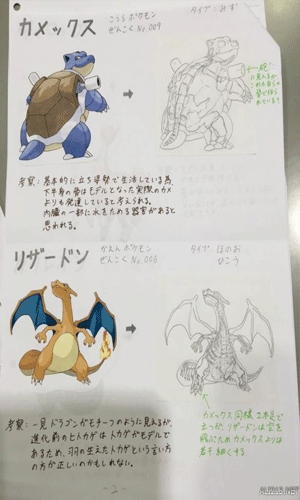 カメックス
こうらポケモン
ぜんこくNo.009
タイプ：みず
考察：基本的に立ち姿勢で生活している為、
下半身の骨はモデルとなった実際のカメ
よりも発達していると考えられる。
内臓の一部に水をためる器官があると
思われる。
リザードン
かえんポケモン
ぜんこくNo.006
タイプ ほのお
ひこう
カメックス同様、2本足で
立つが、リザードンは空を
飛ぶためカメックスよりは
若干細くする
考察：一見ドラゴンがモチーフのように見えるが、
進化前のヒトカゲはトカゲがモデルで
あるため、羽の生えたトカゲという言い方
の方が正しいのかもしれない。
-2-